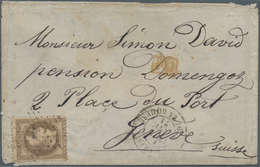 Monsieur Simon David
pension Domengoz
2 Place du Port
Genève
Suisse
PD